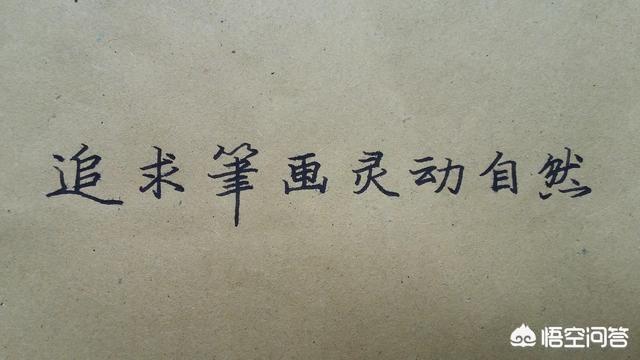 追求筆画灵动自然
悟空问答